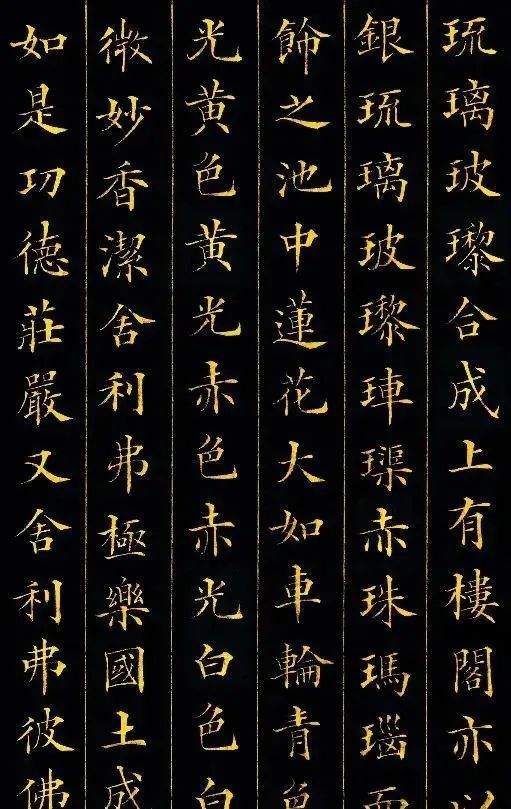 琉璃玻瓈合成上有樓閣亦以
銀琉璃玻瓈𤥭璖赤珠瑪瑙而
飾之池中蓮花大如車輪青色
光黃色黃光赤色赤光白色白
微妙香潔舍利弗極樂國土成
如是功德莊嚴又舍利弗彼佛